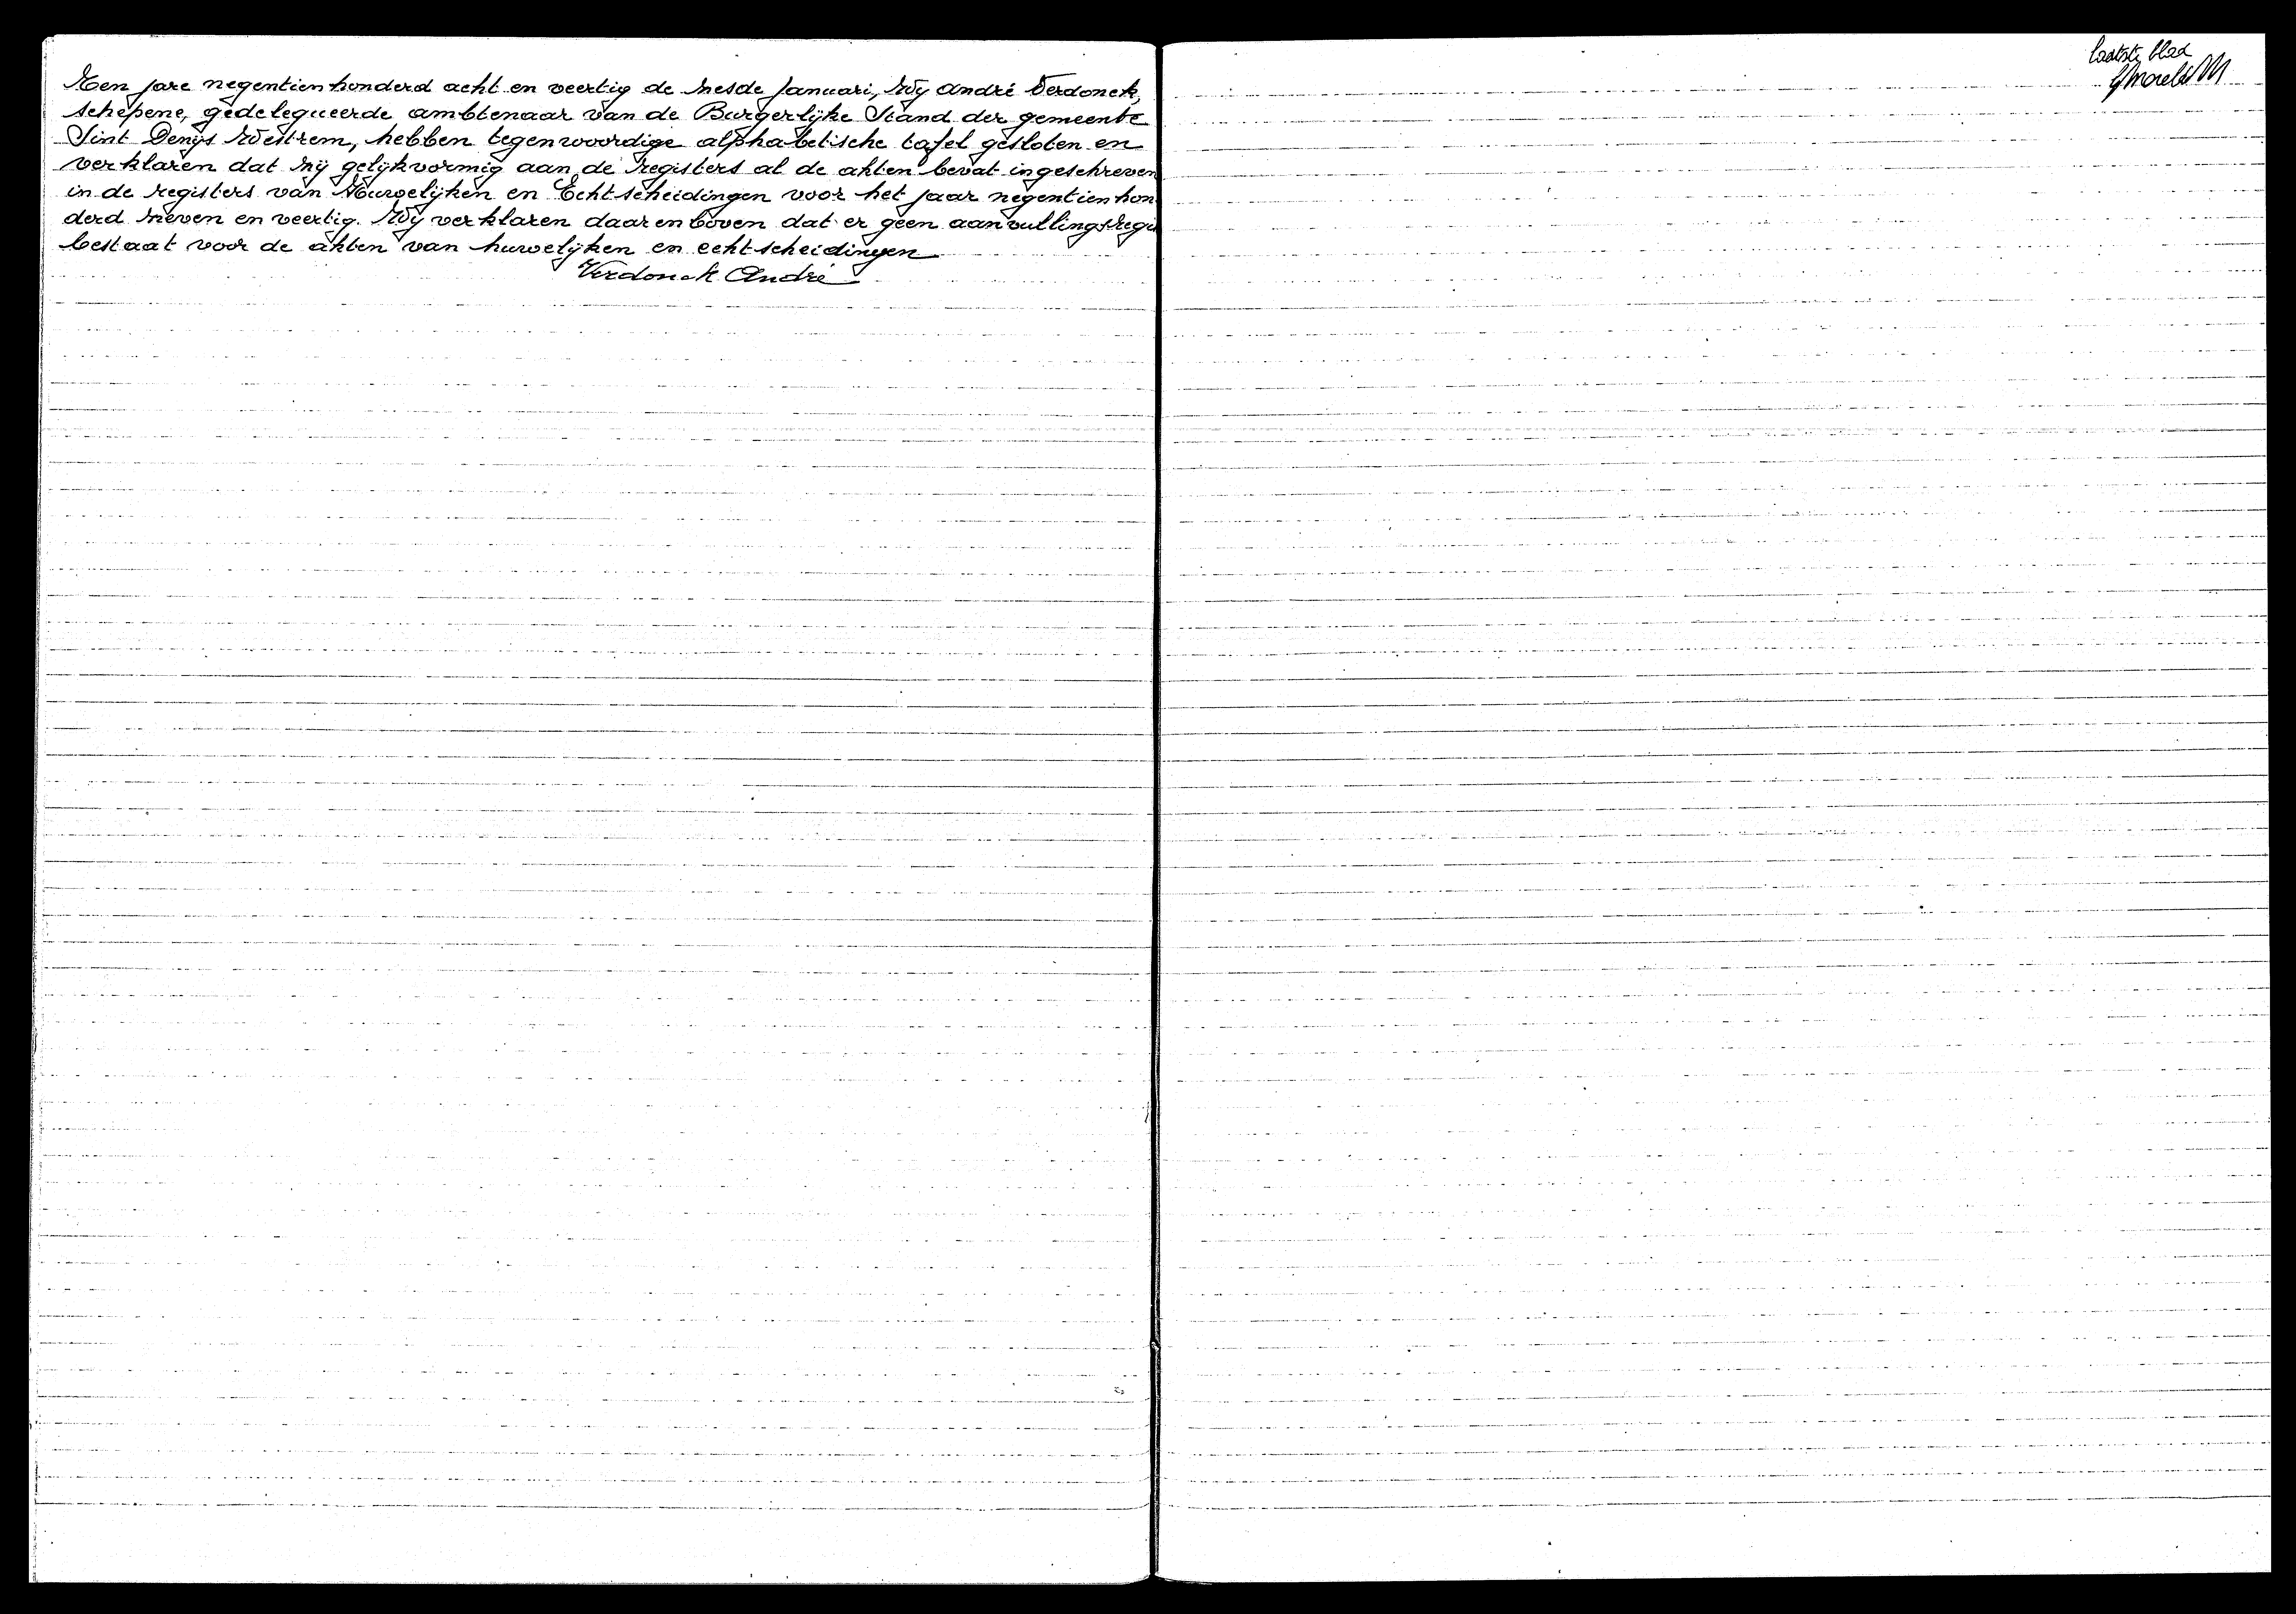 Ten jare negentienhonderd acht en veertig de zesde Januari, Wij André Verdonck,
schepene, gedelegueerde ambtenaar van de Burgerlijke Stand der gemeente
Sint Denijs Westrem, hebben tegenwoordige alphabetische tafel gesloten en
verklaren dat zij gelijkvormig aan de registers al de akten bevat ingeschreven
in de registers van Huwelijken en Echtscheidingen voor het jaar negentienhon
derd zeven en veertig. Wij verklaren daarenboven dat er geen aanvullingsregis
bestaat voor de akten van huwelijken en echtscheidingen
Verdonck André
laatste blad